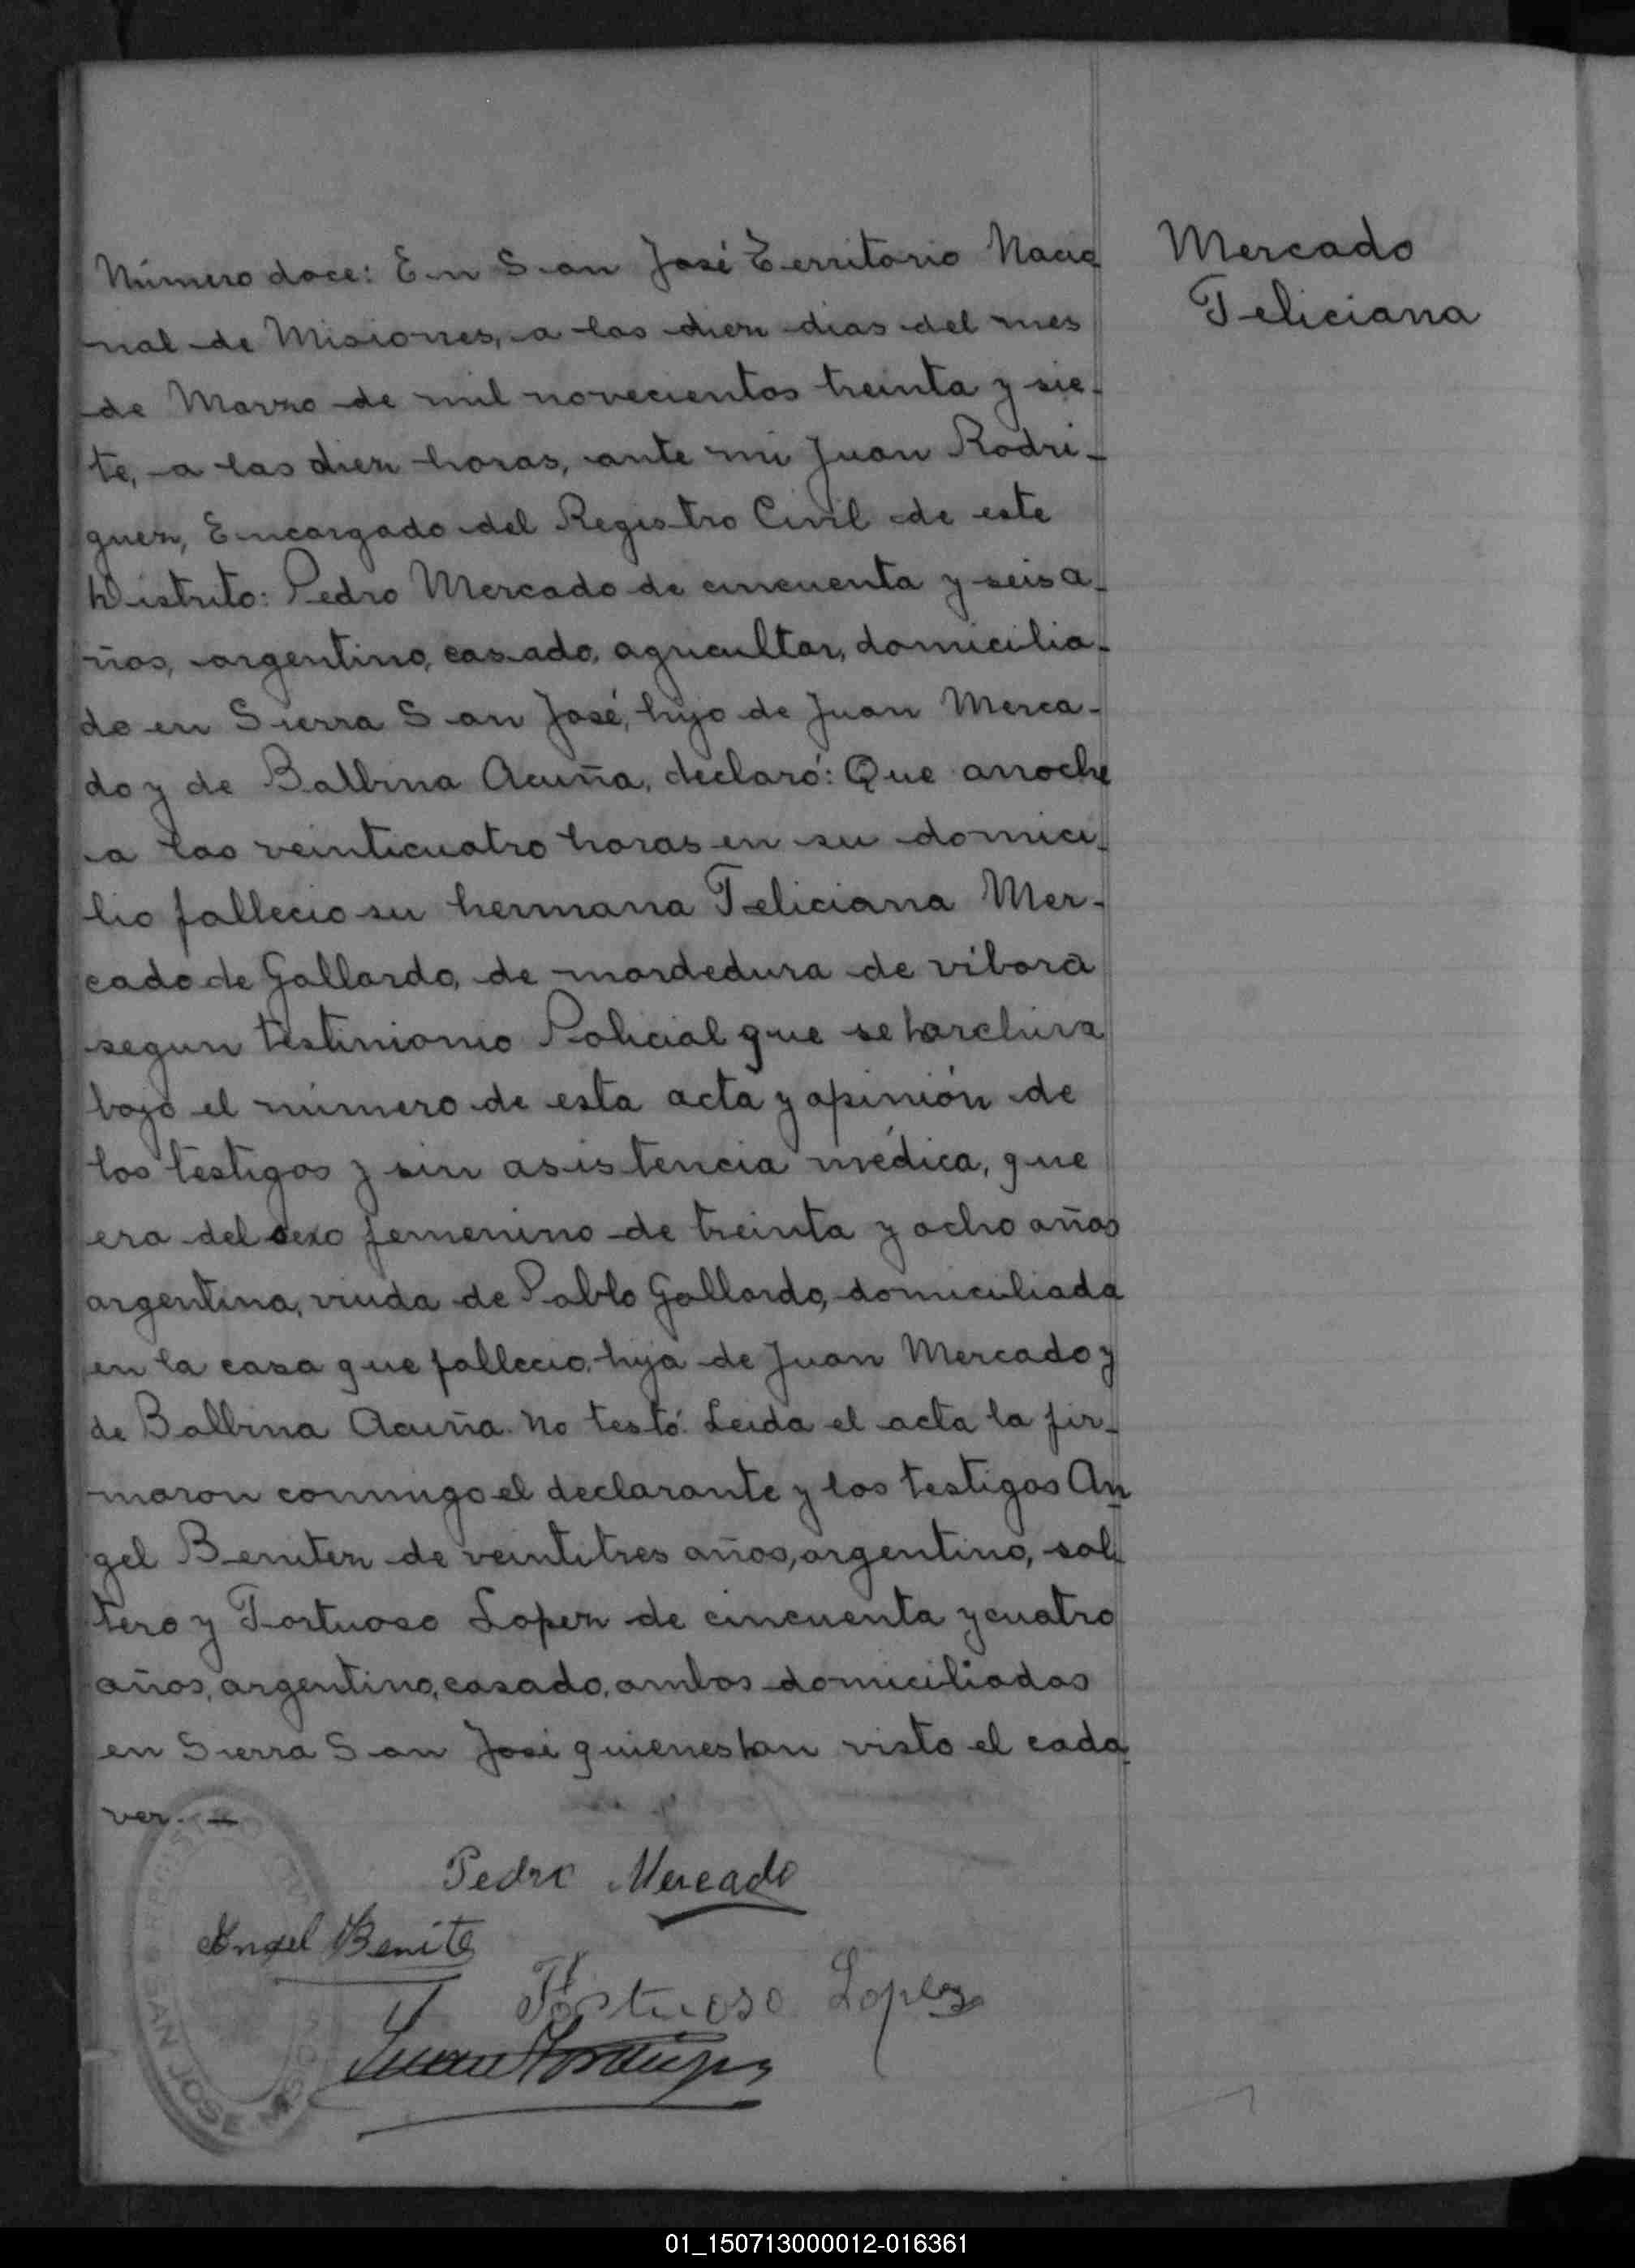 Mercado
Feliciana
Número doce: En San José Territorio Nacio
nal de Misiones, a los diez dias del mes
de Marzo de mil novecientos treinta y sie-
te, a las diez horas, ante mi Juan Rodri-
guez, Encargado del Registro Civil de este
Distrito: Pedro Mercado de cincuenta y seis a-
ños, argentino, casado, agricultor, domicilia-
do en Sierra San José, hijo de Juan Merca-
do y de Balbina Acuña, declaró: Que anoche
a las veinticuatro horas en su domici-
lio fallecio su hermana Feliciana Mer-
cado de Gallardo, de mordedura de víbora
segun testimonio Policial que se archiva
bajo el número de esta acta y opinión de
los testigos y sin asistencia médica, que
era del sexo femenino de treinta y ocho años
argentina, viuda de Pablo Gallardo, domiciliada
en la casa que fallecio, hija de Juan Mercado y
de Balbina Acuña. No testó. Leida el acta la fir-
maron conmigo el declarante y los testigos An
gel Benitez de veintitres años, argentino, sol-
tero y Fortuoso Lopez de cincuenta y cuatro
años, argentino, casado, ambos domiciliados
en Sierra San José quienes han visto el cada
ver. —
Pedro Mercado
Angel Benite
Fortuoso Lopez
Juan Rodriguez
SAN JOSE
01_150713000012-016361